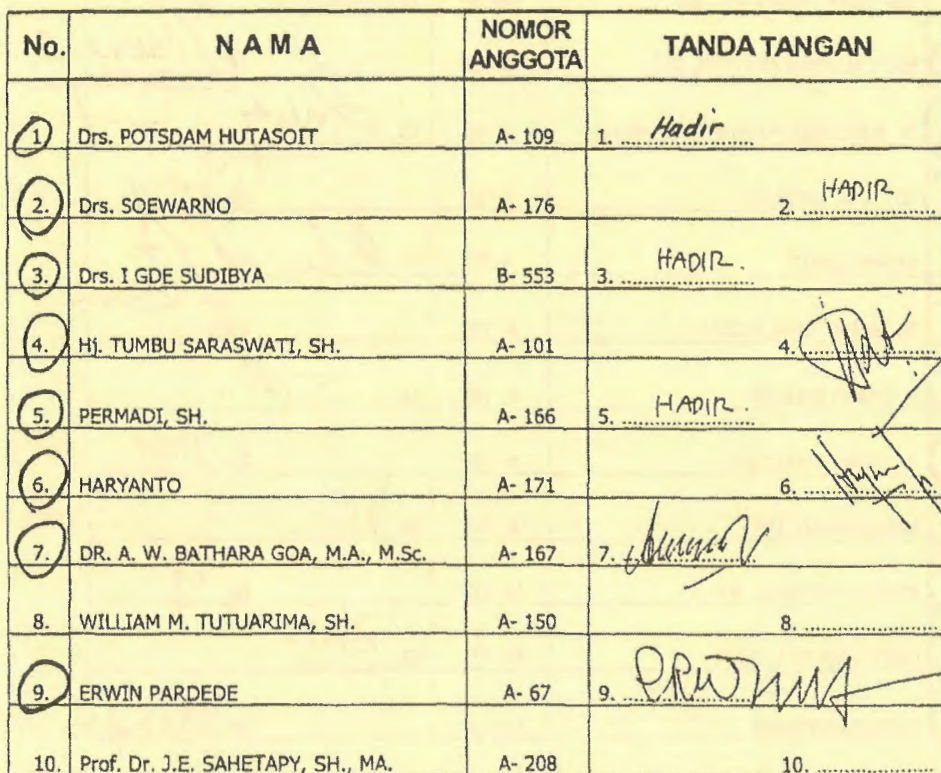 No. N A M A NOMOR ANGGOTA TANDA TANGAN
1 Drs. POTSDAM HUTASOIT A- 109 1. Hadir
2. Drs. SOEWARNO A- 176 2. HADIR
3. Drs. I GDE SUDIBYA B- 553 3. HADIR.
4. Hj. TUMBU SARASWATI, SH. A- 101 4.
5. PERMADI, SH. A- 166 5. HADIR.
6. HARYANTO A- 171 6.
7. DR. A. W. BATHARA GOA, M.A., M.Sc. A- 167 7.
8. WILLIAM M. TUTUARIMA, SH. A- 150 8.
9. ERWIN PARDEDE A- 67 9.
10. Prof. Dr. J.E. SAHETAPY, SH., MA. A- 208 10.